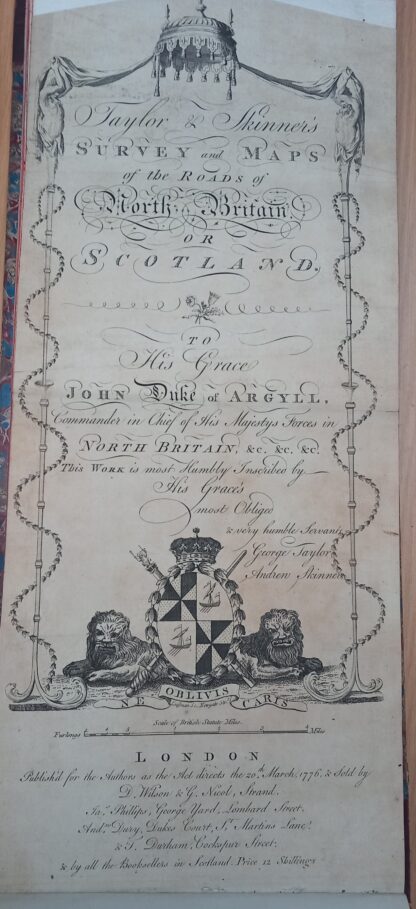 Taylor & Skinner's
SURVEY and MAPS
of the ROADS of
North Britain
OR
SCOTLAND.
TO
His Grace
JOHN Duke of ARGYLL,
Commander in Chief of His Majestys Forces in
NORTH BRITAIN, &c. &c. &c.
This WORK is most Humbly Inscribed by
His Grace's
most Obliged
& very humble Servants
George Taylor
Andrew Skinner
NE OBLIVISCARIS
Scale of British Statute Miles.
Furlongs
Miles
LONDON
Publish'd for the Authors as the Act directs the 20th. March, 1776. & Sold by
D. Wilson & G. Nicol, Strand.
Jas. Phillips, George Yard, Lombard Street.
Andw. Dury, Dukes Court, St. Martins Lane.
& T. Durham, Cockspur Street.
& by all the Booksellers in Scotland. Price 12 Shillings